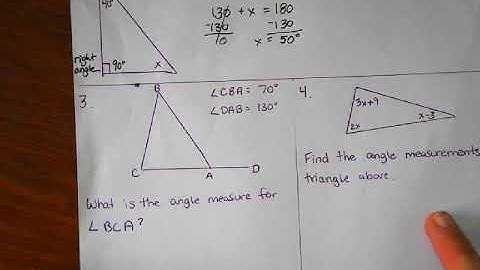 40°
130 + x = 180
-130 -130
10 x = 50°
right
angle
90°
x
3.
B
∠CBA = 70°
∠DAB = 130°
C
A
D
What is the angle measure for
∠BCA?
4.
3x+9
2x
x-3
Find the angle measurements
triangle above.